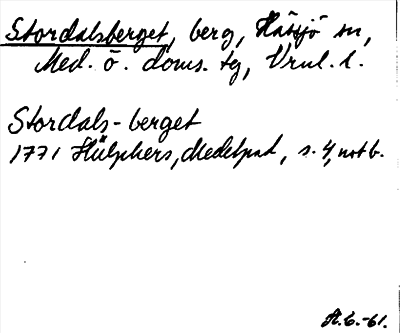 Stordalsberget, berg, Hässjö sn,
Med. ö. doms. tg, Vrnl. l.
Stordals-berget
1771 Hülphers, Medelpad, s. 4, not b.
H.C.-61.